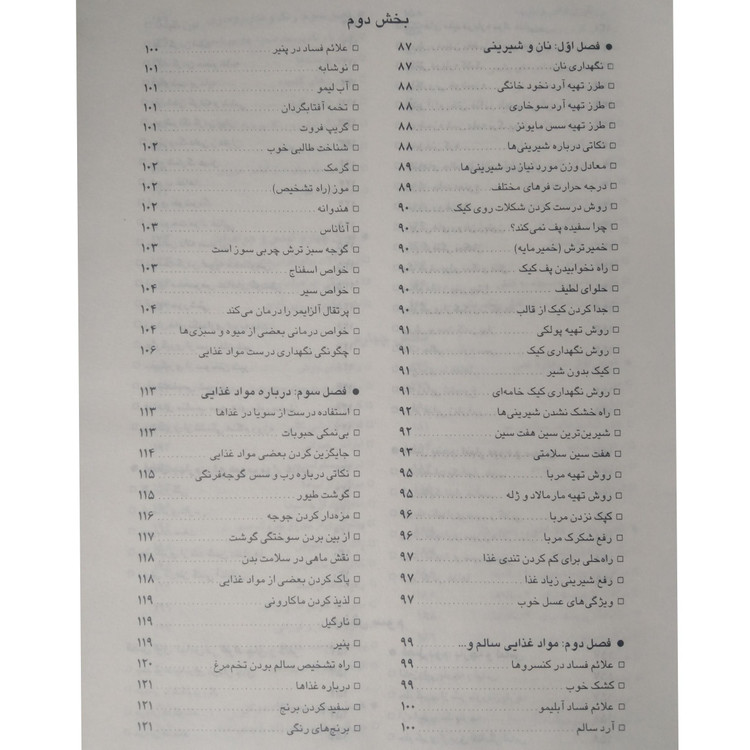 بخش دوم
● فصل اوّل: نان و شیرینی ۸۷
□ نگهداری نان ۸۷
□ طرز تهیه آرد نخود خانگی ۸۸
□ طرز تهیه آرد سوخاری ۸۸
□ طرز تهیه سس مایونز ۸۸
□ نکاتی درباره شیرینی‌ها ۸۸
□ معادل وزن مورد نیاز در شیرینی‌ها ۸۹
□ درجه حرارت فرهای مختلف ۸۹
□ روش درست کردن شکلات روی کیک ۹۰
□ چرا سفیده پف نمی‌کند؟ ۹۰
□ خمیرترش (خمیرمایه) ۹۰
□ راه نخوابیدن پف کیک ۹۰
□ حلوای لطیف ۹۰
□ جدا کردن کیک از قالب ۹۰
□ روش تهیه پولکی ۹۱
□ روش نگهداری کیک ۹۱
□ کیک بدون شیر ۹۱
□ روش نگهداری کیک خامه‌ای ۹۱
□ راه خشک نشدن شیرینی‌ها ۹۲
□ شیرین‌ترین سین هفت سین ۹۲
□ هفت سین سلامتی ۹۳
□ روش تهیه مربا ۹۵
□ روش تهیه مارمالاد و ژله ۹۵
□ کپک نزدن مربا ۹۶
□ رفع شکرک مربا ۹۶
□ راه‌حلی برای کم کردن تندی غذا ۹۷
□ رفع شیرینی زیاد غذا ۹۷
□ ویژگی‌های عسل خوب ۹۷
● فصل دوم: مواد غذایی سالم و... ۹۹
□ علائم فساد در کنسروها ۹۹
□ کشک خوب ۹۹
□ علائم فساد آبلیمو ۱۰۰
□ آرد سالم ۱۰۰
□ علائم فساد در پنیر ۱۰۰
□ نوشابه ۱۰۱
□ آب لیمو ۱۰۱
□ تخمه آفتابگردان ۱۰۱
□ گریپ فروت ۱۰۱
□ شناخت طالبی خوب ۱۰۲
□ گرمک ۱۰۲
□ موز (راه تشخیص) ۱۰۲
□ هندوانه ۱۰۲
□ آناناس ۱۰۳
□ گوجه سبز ترش چربی سوز است ۱۰۳
□ خواص اسفناج ۱۰۳
□ خواص سیر ۱۰۴
□ پرتقال آلزایمر را درمان می‌کند ۱۰۴
□ خواص درمانی بعضی از میوه و سبزی‌ها ۱۰۴
□ چگونگی نگهداری درست مواد غذایی ۱۰۶
● فصل سوم: درباره مواد غذایی ۱۱۳
□ استفاده درست از سویا در غذاها ۱۱۳
□ بی‌نمکی حبوبات ۱۱۳
□ جایگزین کردن بعضی مواد غذایی ۱۱۴
□ نکاتی درباره رب و سس گوجه‌فرنگی ۱۱۵
□ گوشت طیور ۱۱۵
□ مزه‌دار کردن جوجه ۱۱۶
□ از بین بردن سوختگی گوشت ۱۱۷
□ نقش ماهی در سلامت بدن ۱۱۸
□ پاک کردن بعضی از مواد غذایی ۱۱۸
□ لذیذ کردن ماکارونی ۱۱۹
□ نارگیل ۱۱۹
□ پنیر ۱۱۹
□ راه تشخیص سالم بودن تخم‌مرغ ۱۲۰
□ درباره غذاها ۱۲۱
□ سفید کردن برنج ۱۲۱
□ برنج‌های رنگی ۱۲۱